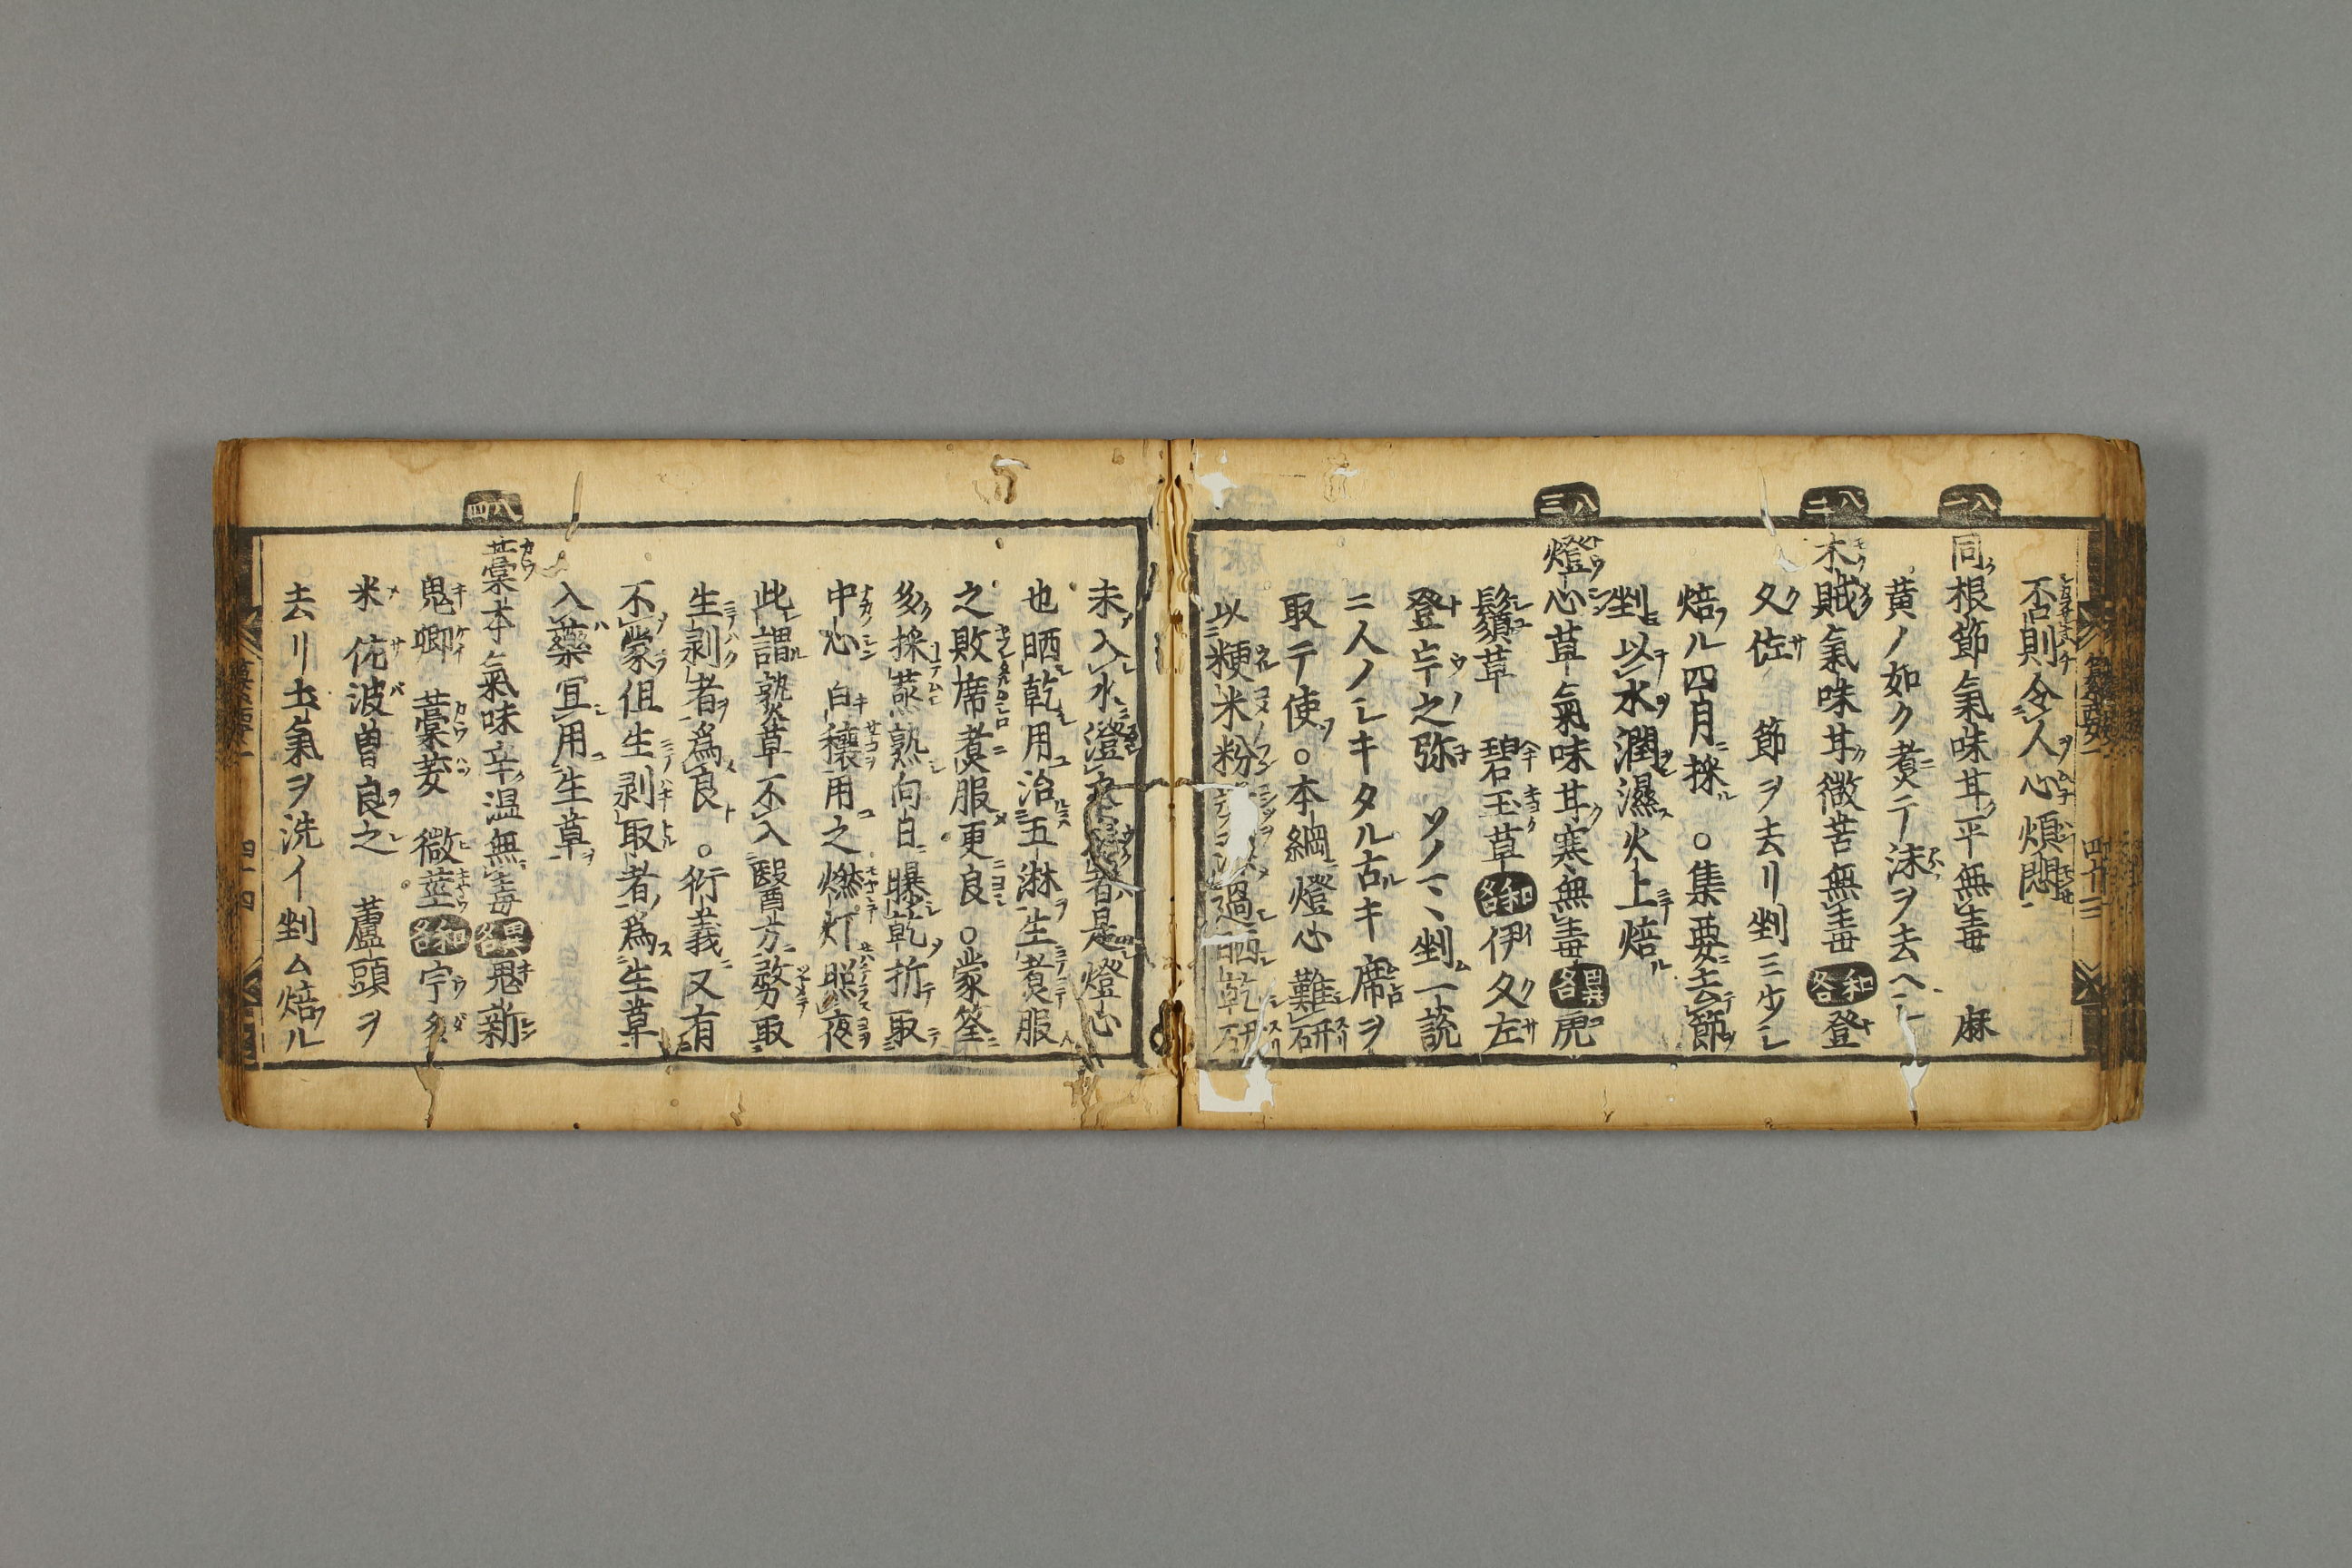 不則令人心煩悶
八一
同根節氣味甘平無毒　麻
黄ノ如ク煮テ沫ヲ去ヘシ
八二
木賊氣味甘微苦無毒 和名 登
久佐　節ヲ去リ剉ミ少シ
焙ル四月採ル○集要去節
剉以水潤濕火上焙
八三
燈心草氣味甘寒無毒 異名 虎
鬚草　碧玉草 和名 伊久左
登宇之弥　ソノマヽ剉ム一説
ニ人ノシキタル古キ席ヲ
取テ使○本綱燈心難研
以粳米粉 過晒乾研
末入水澄之 者是燈心
也晒乾用治五淋生煮服
之敗席煮服更良○蒙筌
多採蒸熟向日曝乾折取
中心白穰用之燃灯照夜
此謂熟草不入醫方務取
生剥者為良○衍義又有
不蒙但生剥取者為生草
入藥宜用生草
八四
藁本氣味辛温無毒 異名 鬼新
鬼卿　藁茇　微莖 和名 宇多
米　佐波曽良之　蘆頭ヲ
去リ土氣ヲ洗イ剉ム焙ル
四十四